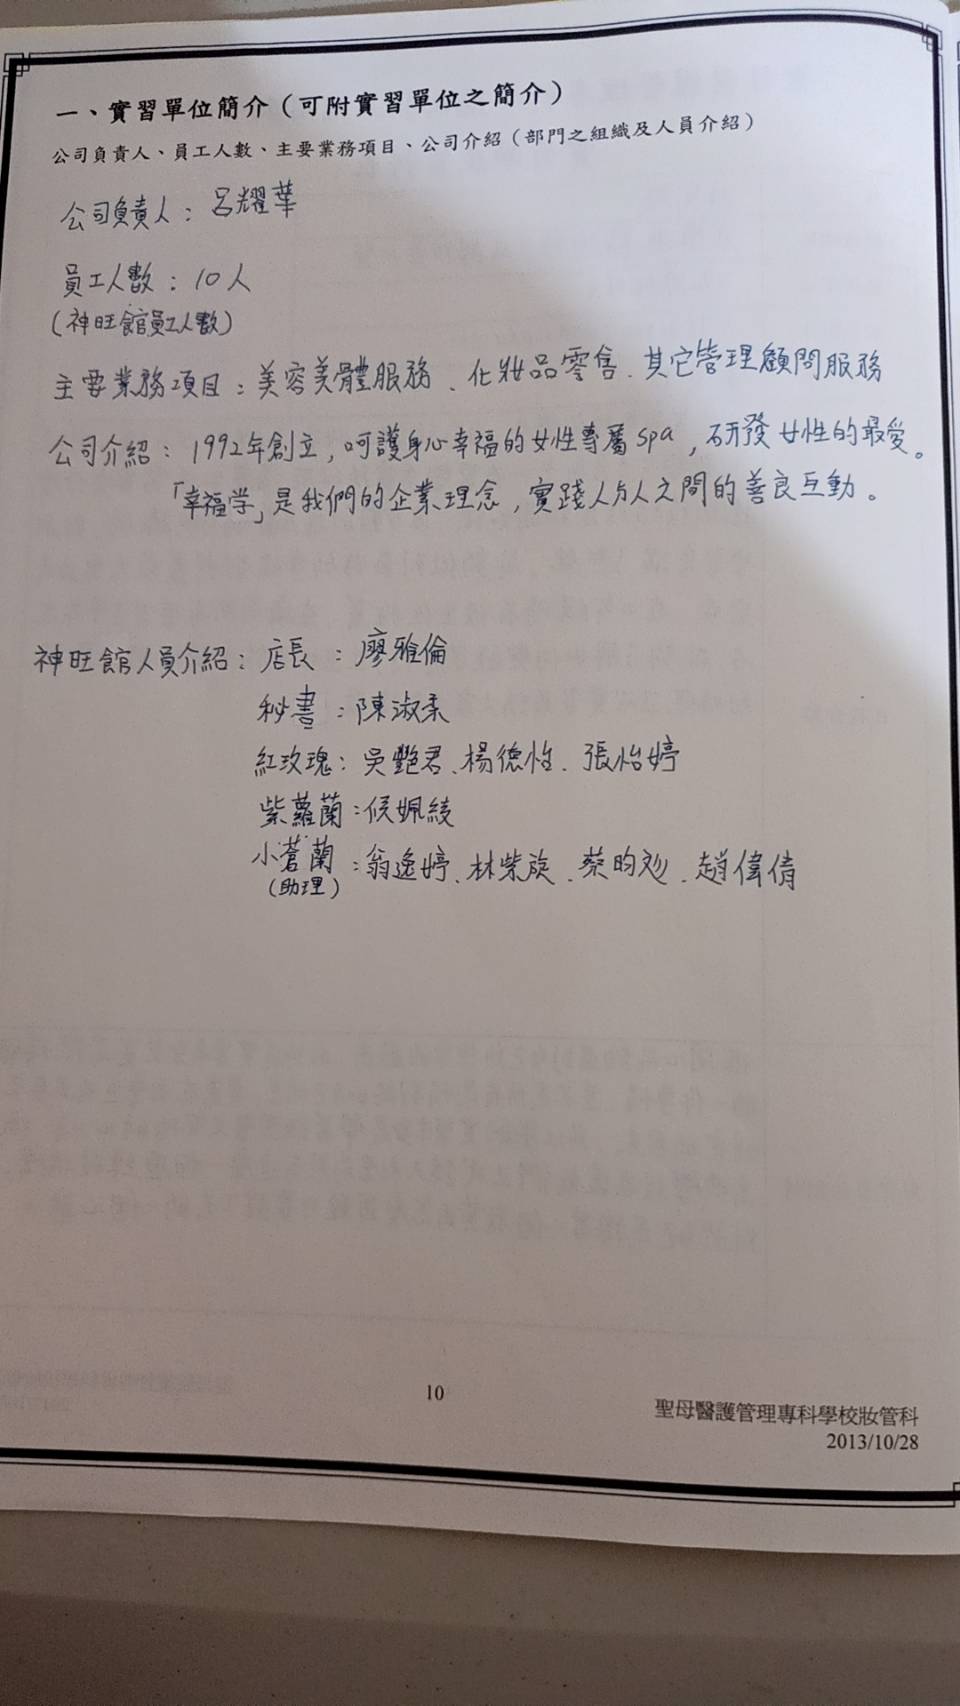 一、實習單位簡介（可附實習單位之簡介）
公司負責人、員工人數、主要業務項目、公司介紹（部門之組織及人員介紹）
公司負責人：呂耀華
員工人數：10人
(神旺館員工人數)
主要業務項目：美容美體服務、化妝品零售、其它管理顧問服務
公司介紹：1992年創立，呵護身心幸福的女性專屬spa，研發女性的最愛。
「幸福学」是我們的企業理念，實踐人与人之間的善良互動。
神旺館人員介紹：店長：廖雅倫
秘書：陳淑柔
紅玫瑰：吳艷君、楊德性、張怡婷
紫蘿蘭：侯姵綾
小蒼蘭：翁逸婷、林紫旋、蔡昀、趙偉倩
(助理)
10
聖母醫護管理專科學校妝管科
2013/10/28